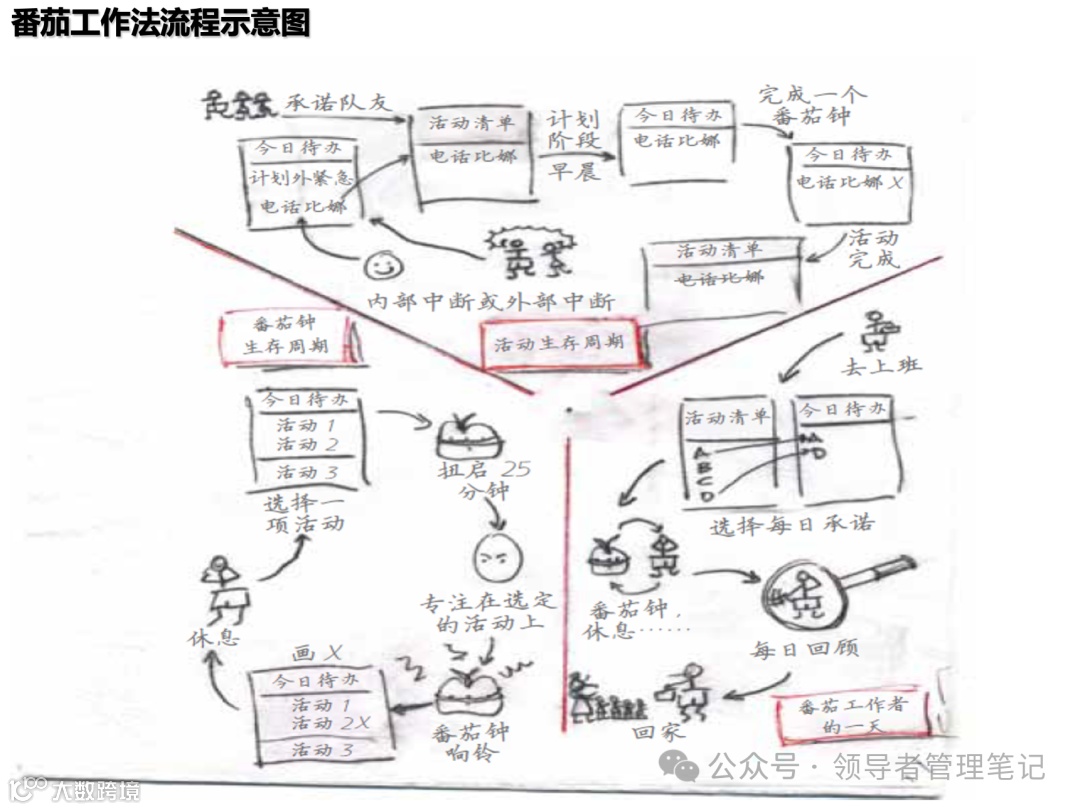 番茄工作法流程示意图
承诺队友
活动清单
电话比娜
计划
阶段
早晨
今日待办
电话比娜
完成一个
番茄钟
今日待办
电话比娜X
今日待办
计划外紧急
电话比娜
活动
完成
活动清单
电话比娜
内部中断或外部中断
活动生存周期
番茄钟
生存周期
今日待办
活动1
活动2
活动3
选择一
项活动
扭启 25
分钟
专注在选定
的活动上
番茄钟
响铃
画 X
今日待办
活动1
活动2X
活动3
休息
去上班
活动清单
A
B
C
D
今日待办
A
D
选择每日承诺
番茄钟，
休息……
每日回顾
回家
番茄工作者
的一天
公众号·领导者管理笔记
大数跨境